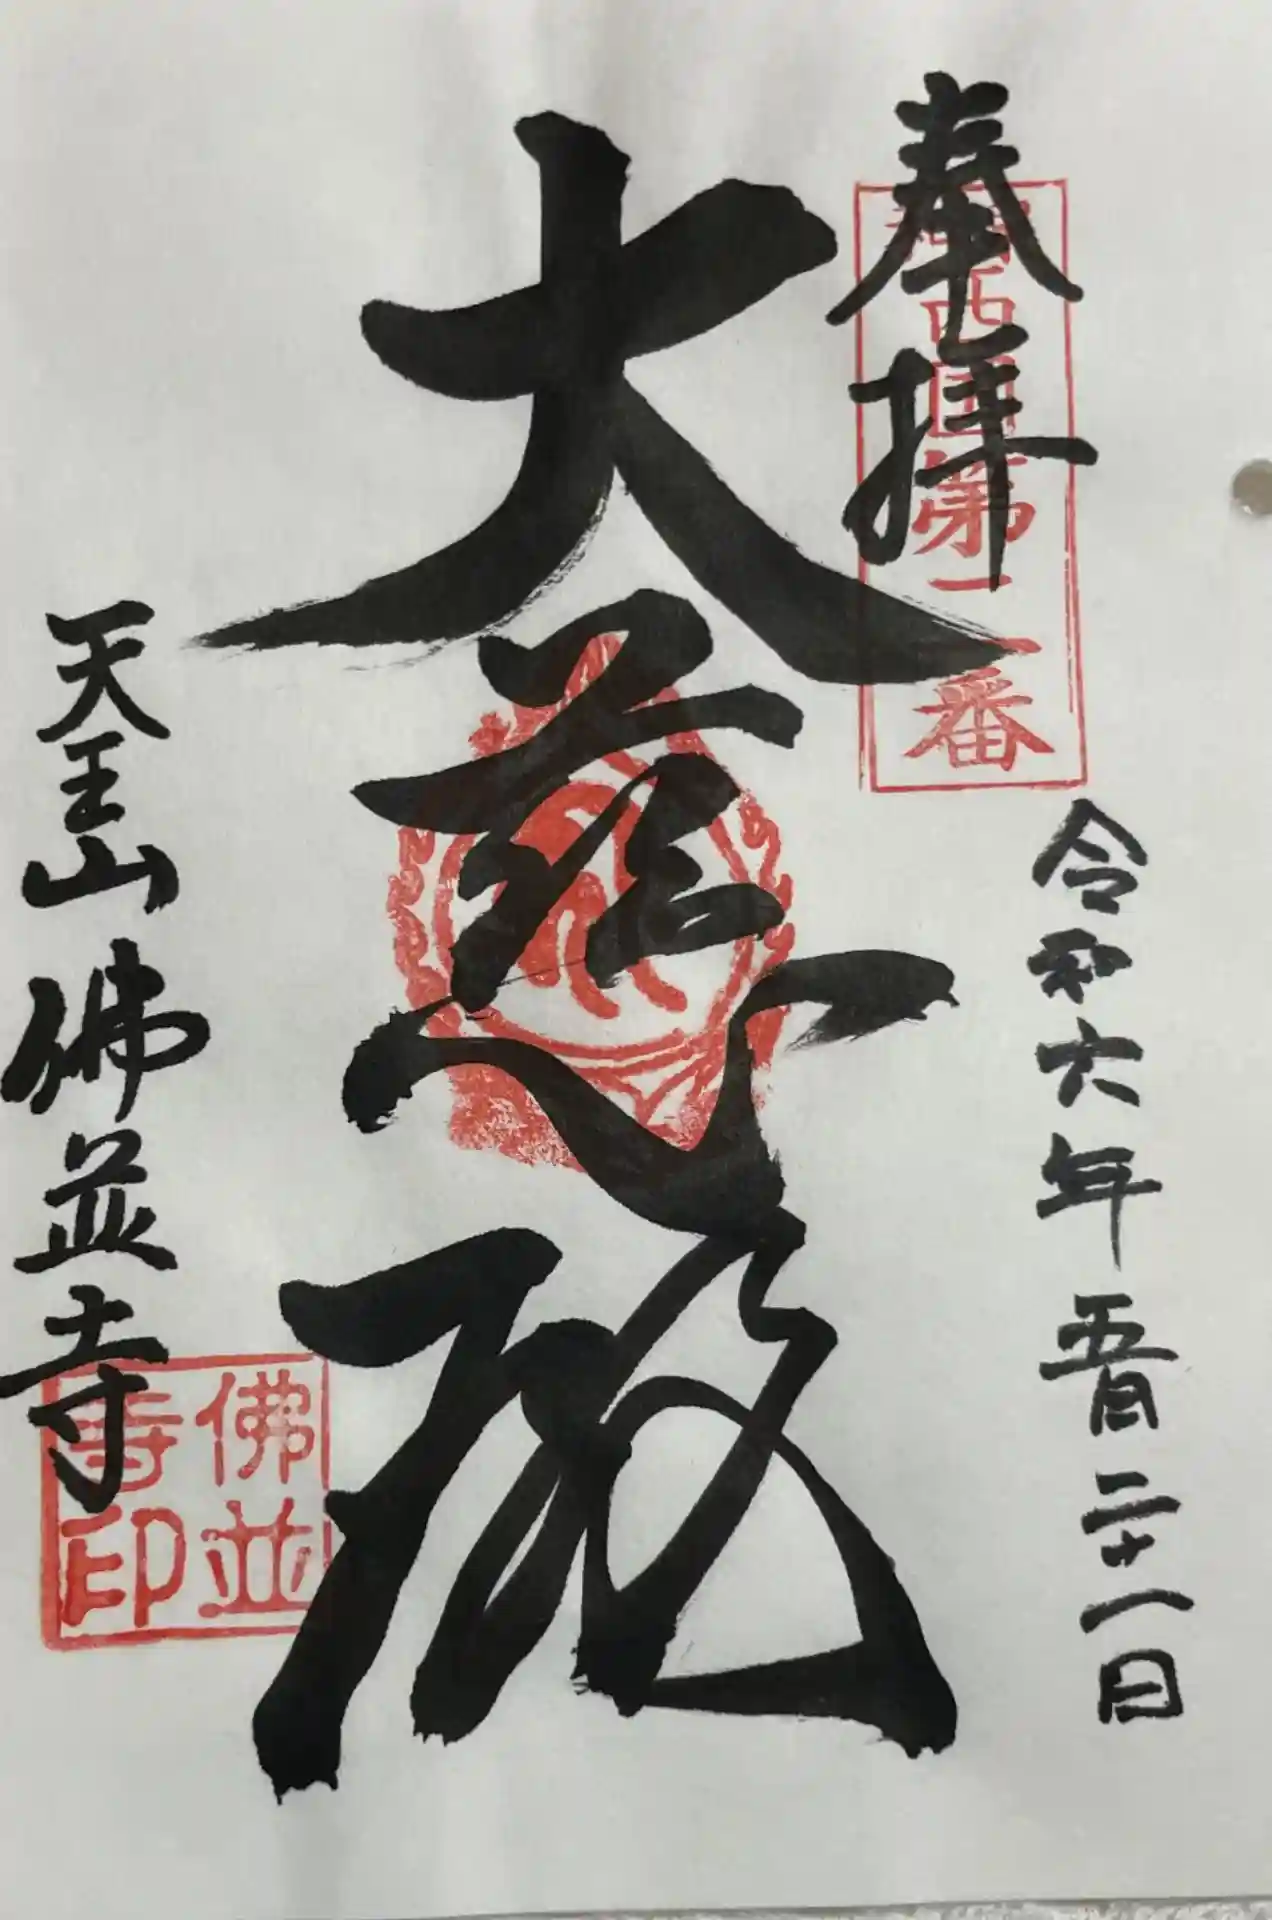 奉拝
西国第二番
令和六年五月二十一日
大慈殿
天王山佛並寺
佛並
寺印